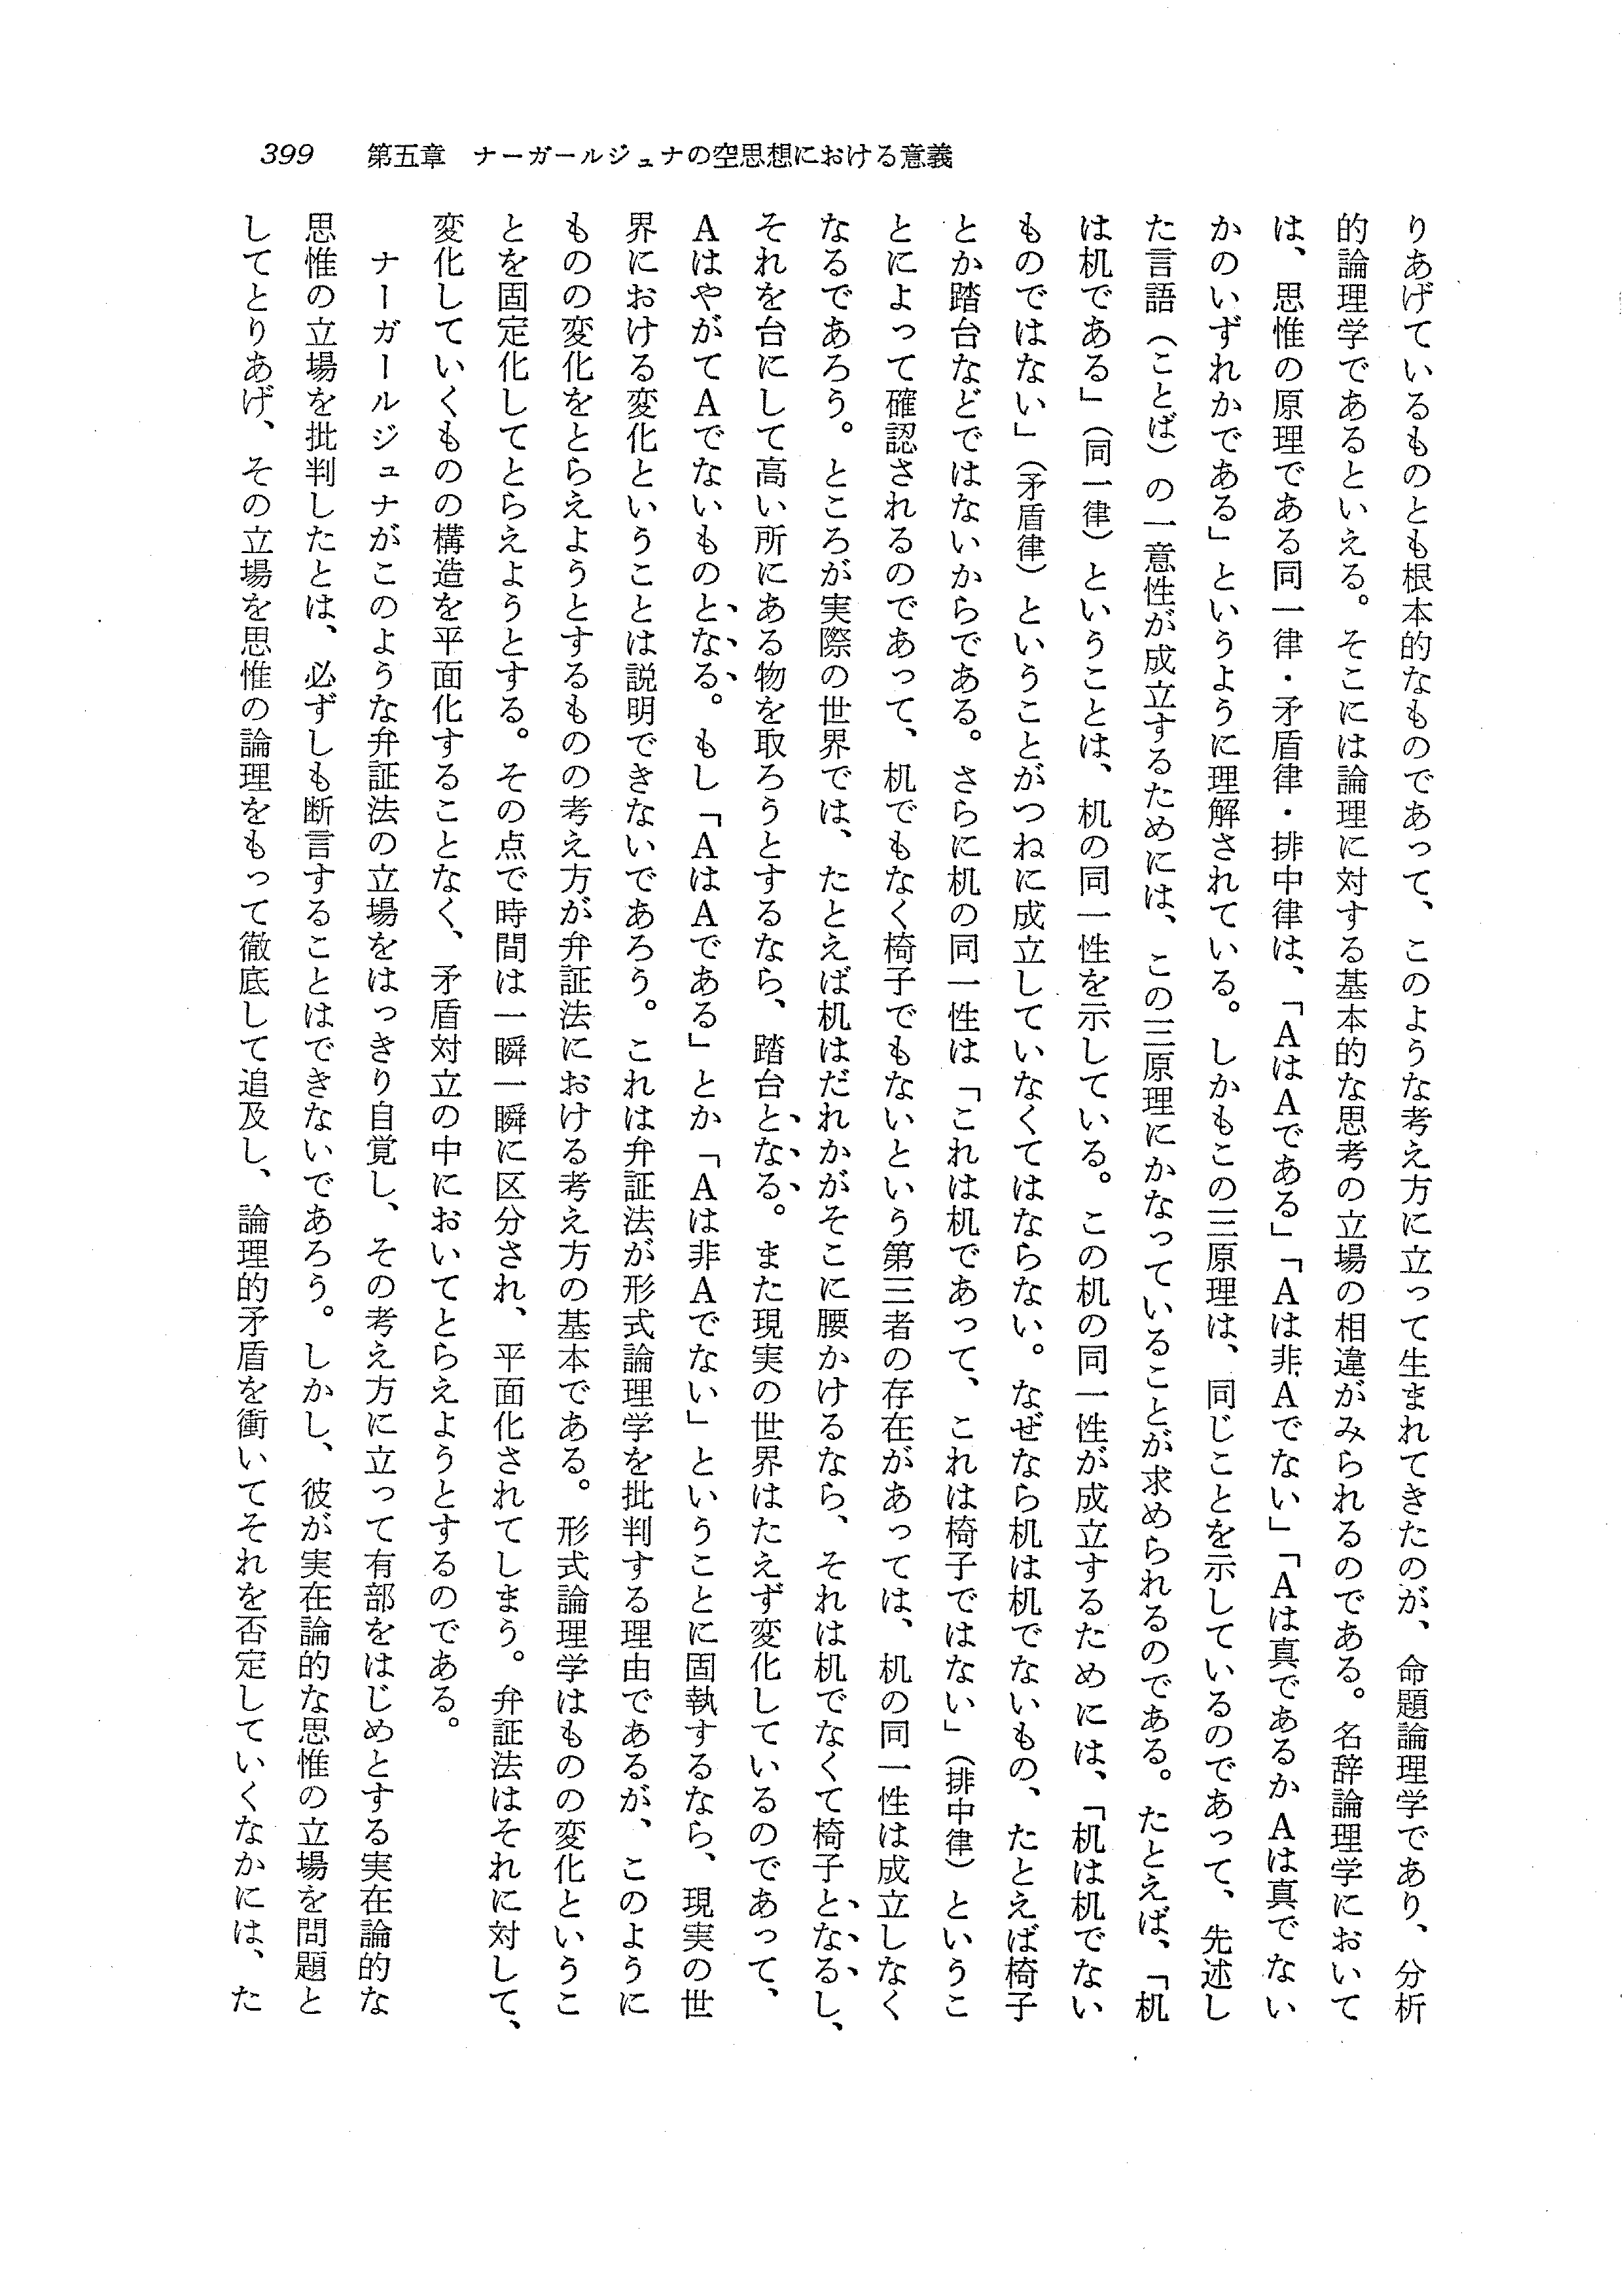 399　第五章　ナーガールジュナの空思想における意義
りあげているものとも根本的なものであって、このような考え方に立って生まれてきたのが、命題論理学であり、分析
的論理学であるといえる。そこには論理に対する基本的な思考の立場の相違がみられるのである。名辞論理学において
は、思惟の原理である同一律・矛盾律・排中律は、「AはAである」「Aは非Aでない」「Aは真であるかAは真でない
かのいずれかである」というように理解されている。しかもこの三原理は、同じことを示しているのであって、先述し
た言語（ことば）の一意性が成立するためには、この三原理にかなっていることが求められるのである。たとえば、「机
は机である」（同一律）ということは、机の同一性を示している。この机の同一性が成立するためには、「机は机でない
ものではない」（矛盾律）ということがつねに成立していなくてはならない。なぜなら机は机でないもの、たとえば椅子
とか踏台などではないからである。さらに机の同一性は「これは机であって、これは椅子ではない」（排中律）というこ
とによって確認されるのであって、机でもなく椅子でもないという第三者の存在があっては、机の同一性は成立しなく
なるであろう。ところが実際の世界では、たとえば机はだれかがそこに腰かけるなら、それは机でなくて椅子となるし、
それを台にして高い所にある物を取ろうとするなら、踏台となる。また現実の世界はたえず変化しているのであって、
AはやがてAでないものとなる。もし「AはAである」とか「Aは非Aでない」ということに固執するなら、現実の世
界における変化ということは説明できないであろう。これは弁証法が形式論理学を批判する理由であるが、このように
ものの変化をとらえようとするものの考え方が弁証法における考え方の基本である。形式論理学はものの変化というこ
とを固定化してとらえようとする。その点で時間は一瞬一瞬に区分され、平面化されてしまう。弁証法はそれに対して、
変化していくものの構造を平面化することなく、矛盾対立の中においてとらえようとするのである。
　ナーガールジュナがこのような弁証法の立場をはっきり自覚し、その考え方に立って有部をはじめとする実在論的な
思惟の立場を批判したとは、必ずしも断言することはできないであろう。しかし、彼が実在論的な思惟の立場を問題と
してとりあげ、その立場を思惟の論理をもって徹底して追及し、論理的矛盾を衝いてそれを否定していくなかには、た